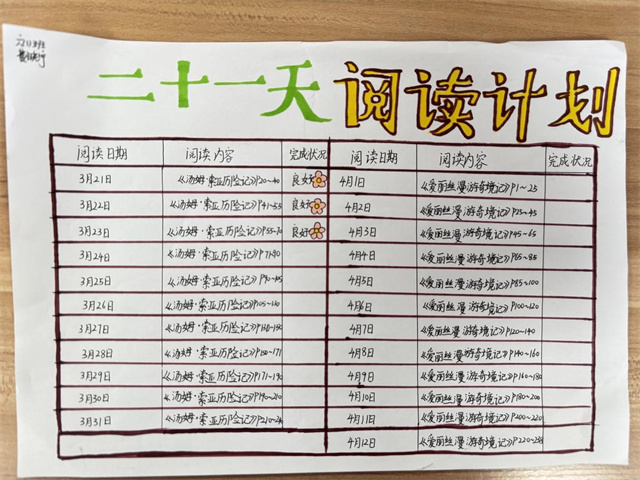 二十一天阅读计划
阅读日期 阅读内容 完成状况 阅读日期 阅读内容 完成状况
3月21日 《汤姆·索亚历险记》P20~40 良好 4月1日 《爱丽丝漫游奇境记》P1~25
3月22日 《汤姆·索亚历险记》P41~55 良好 4月2日 《爱丽丝漫游奇境记》P25~45
3月23日 《汤姆·索亚历险记》P55~70 良好 4月3日 《爱丽丝漫游奇境记》P45~65
3月24日 《汤姆·索亚历险记》 4月4日 《爱丽丝漫游奇境记》P65~85
3月25日 《汤姆·索亚历险记》 4月5日 《爱丽丝漫游奇境记》P85~100
3月26日 《汤姆·索亚历险记》 4月6日 《爱丽丝漫游奇境记》P100~120
3月27日 《汤姆·索亚历险记》 4月7日 《爱丽丝漫游奇境记》P120~140
3月28日 《汤姆·索亚历险记》 4月8日 《爱丽丝漫游奇境记》P140~160
3月29日 《汤姆·索亚历险记》P171~190 4月9日 《爱丽丝漫游奇境记》P160~180
3月30日 《汤姆·索亚历险记》P190~210 4月10日 《爱丽丝漫游奇境记》P180~200
3月31日 《汤姆·索亚历险记》 4月11日 《爱丽丝漫游奇境记》P200~220
4月12日 《爱丽丝漫游奇境记》